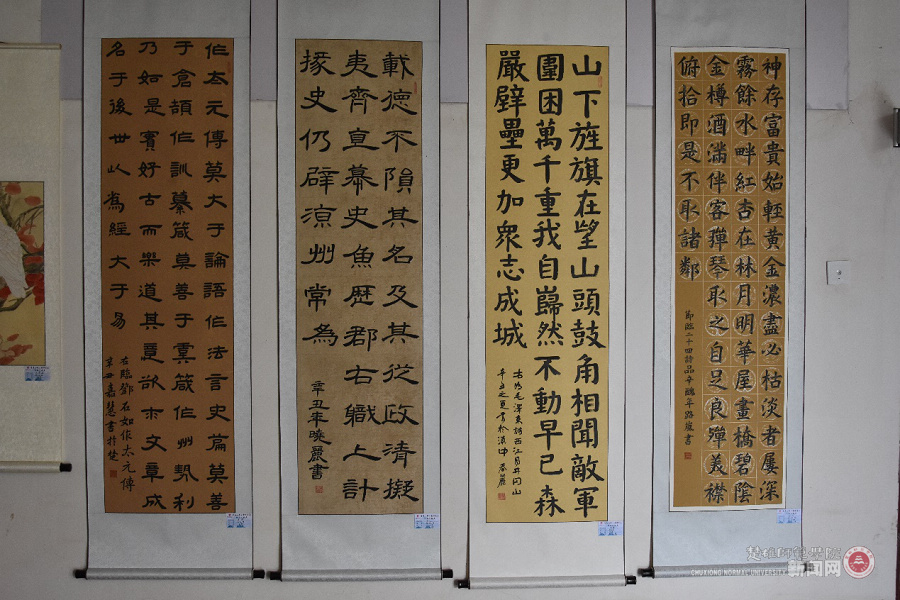 神存富貴始輕黃金濃盡必枯淡者屢深
霧餘水畔紅杏在林月明華屋畫橋碧陰
金樽酒滿伴客彈琴取之自足良殫美襟
俯拾即是不取諸鄰
節臨二十四詩品辛醜年路廣書
山下旌旗在望山頭鼓角相聞敵軍
圍困萬千重我自巋然不動早已森
嚴壁壘更加衆志成城
右爲毛澤東詞西江月井岡山
辛丑之夏書於滇中
載德不隕其名及其從政清擬
夷齊直慕史魚歷郡右職上計
掾史仍辟涼州常爲
辛丑年曉麗書
作太元傳莫大于論語作法言史篇莫善
于倉頡作訓纂箴莫善于虞箴作州
乃如是實好古而樂道其意欲求文章成
名于後世以爲經大于易
右臨鄧石如作太元傳
辛丑嘉慧書于楚
楚雄師範學院
CHUXIONG NORMAL UNIVERSITY
新闻网